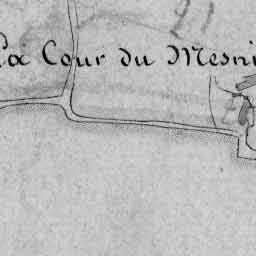 La Cour du Mesni